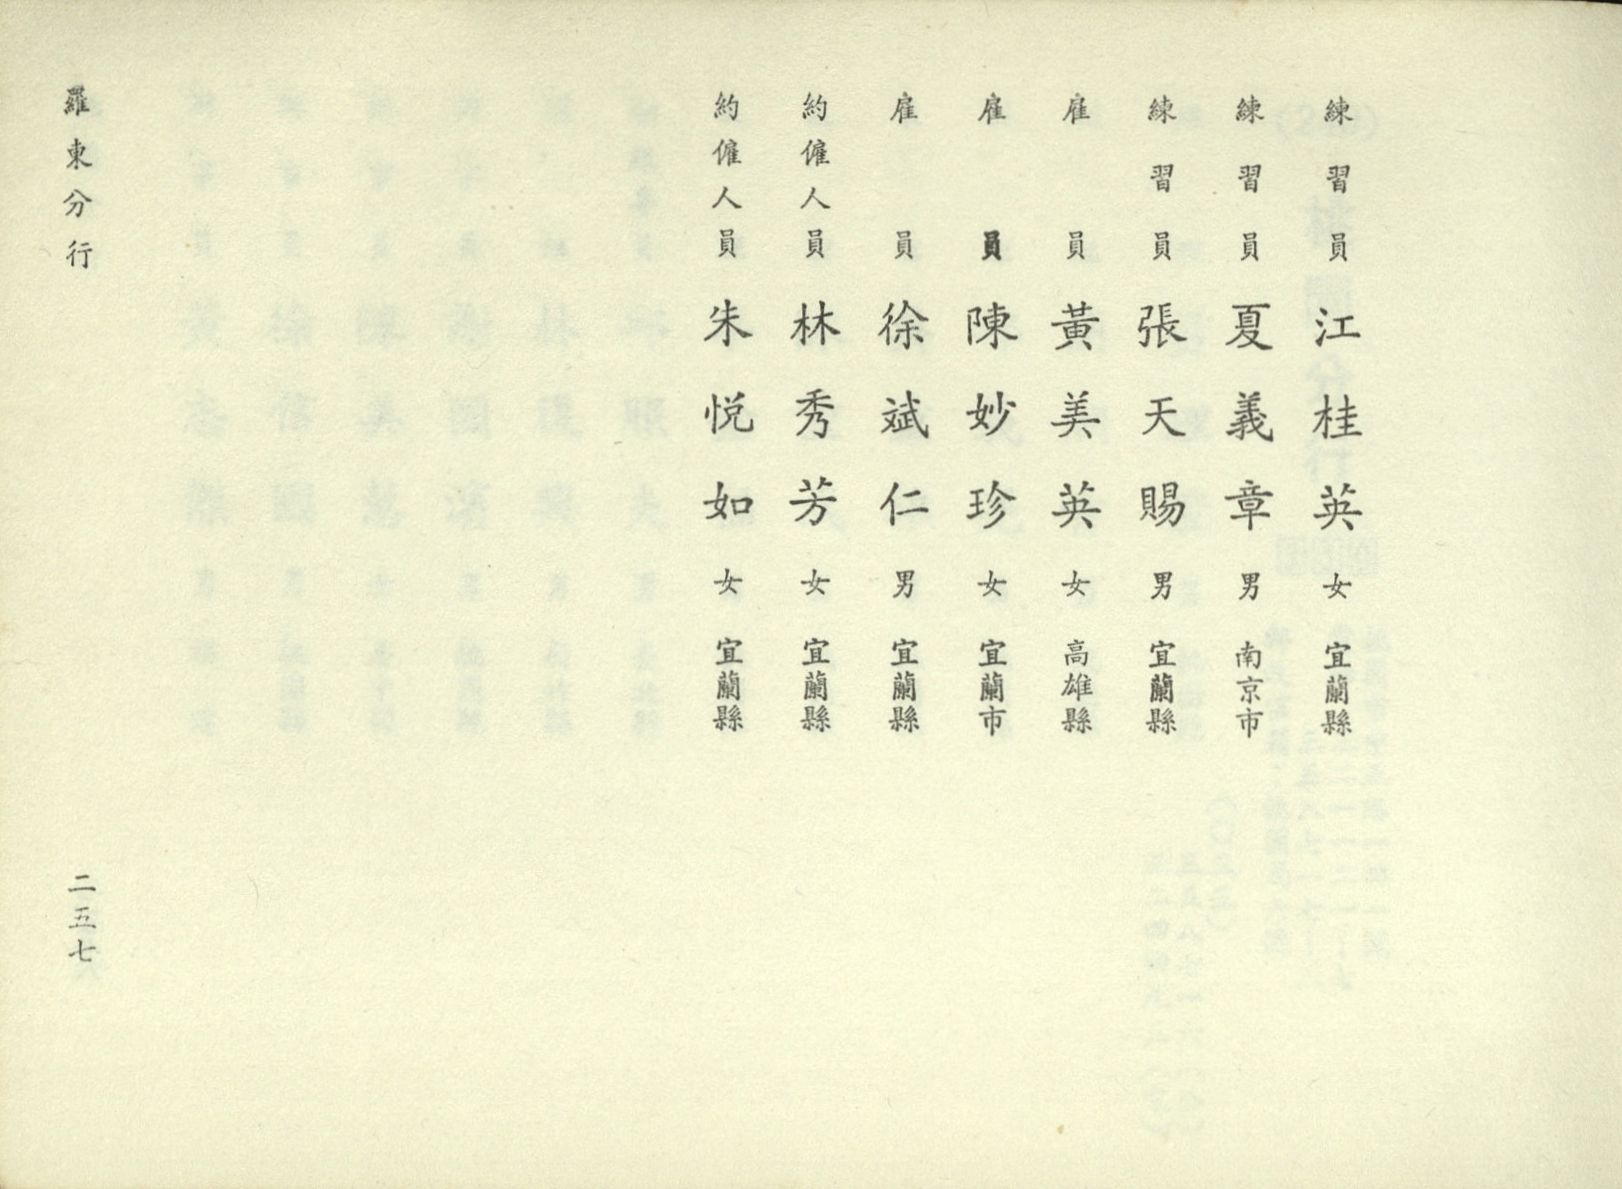 練習員 江桂英 女 宜蘭縣
練習員 夏義章 男 南京市
練習員 張天賜 男 宜蘭縣
雇員 黃美英 女 高雄縣
雇員 陳妙珍 女 宜蘭市
雇員 徐斌仁 男 宜蘭縣
約僱人員 林秀芳 女 宜蘭縣
約僱人員 朱悅如 女 宜蘭縣
羅東分行
二五七